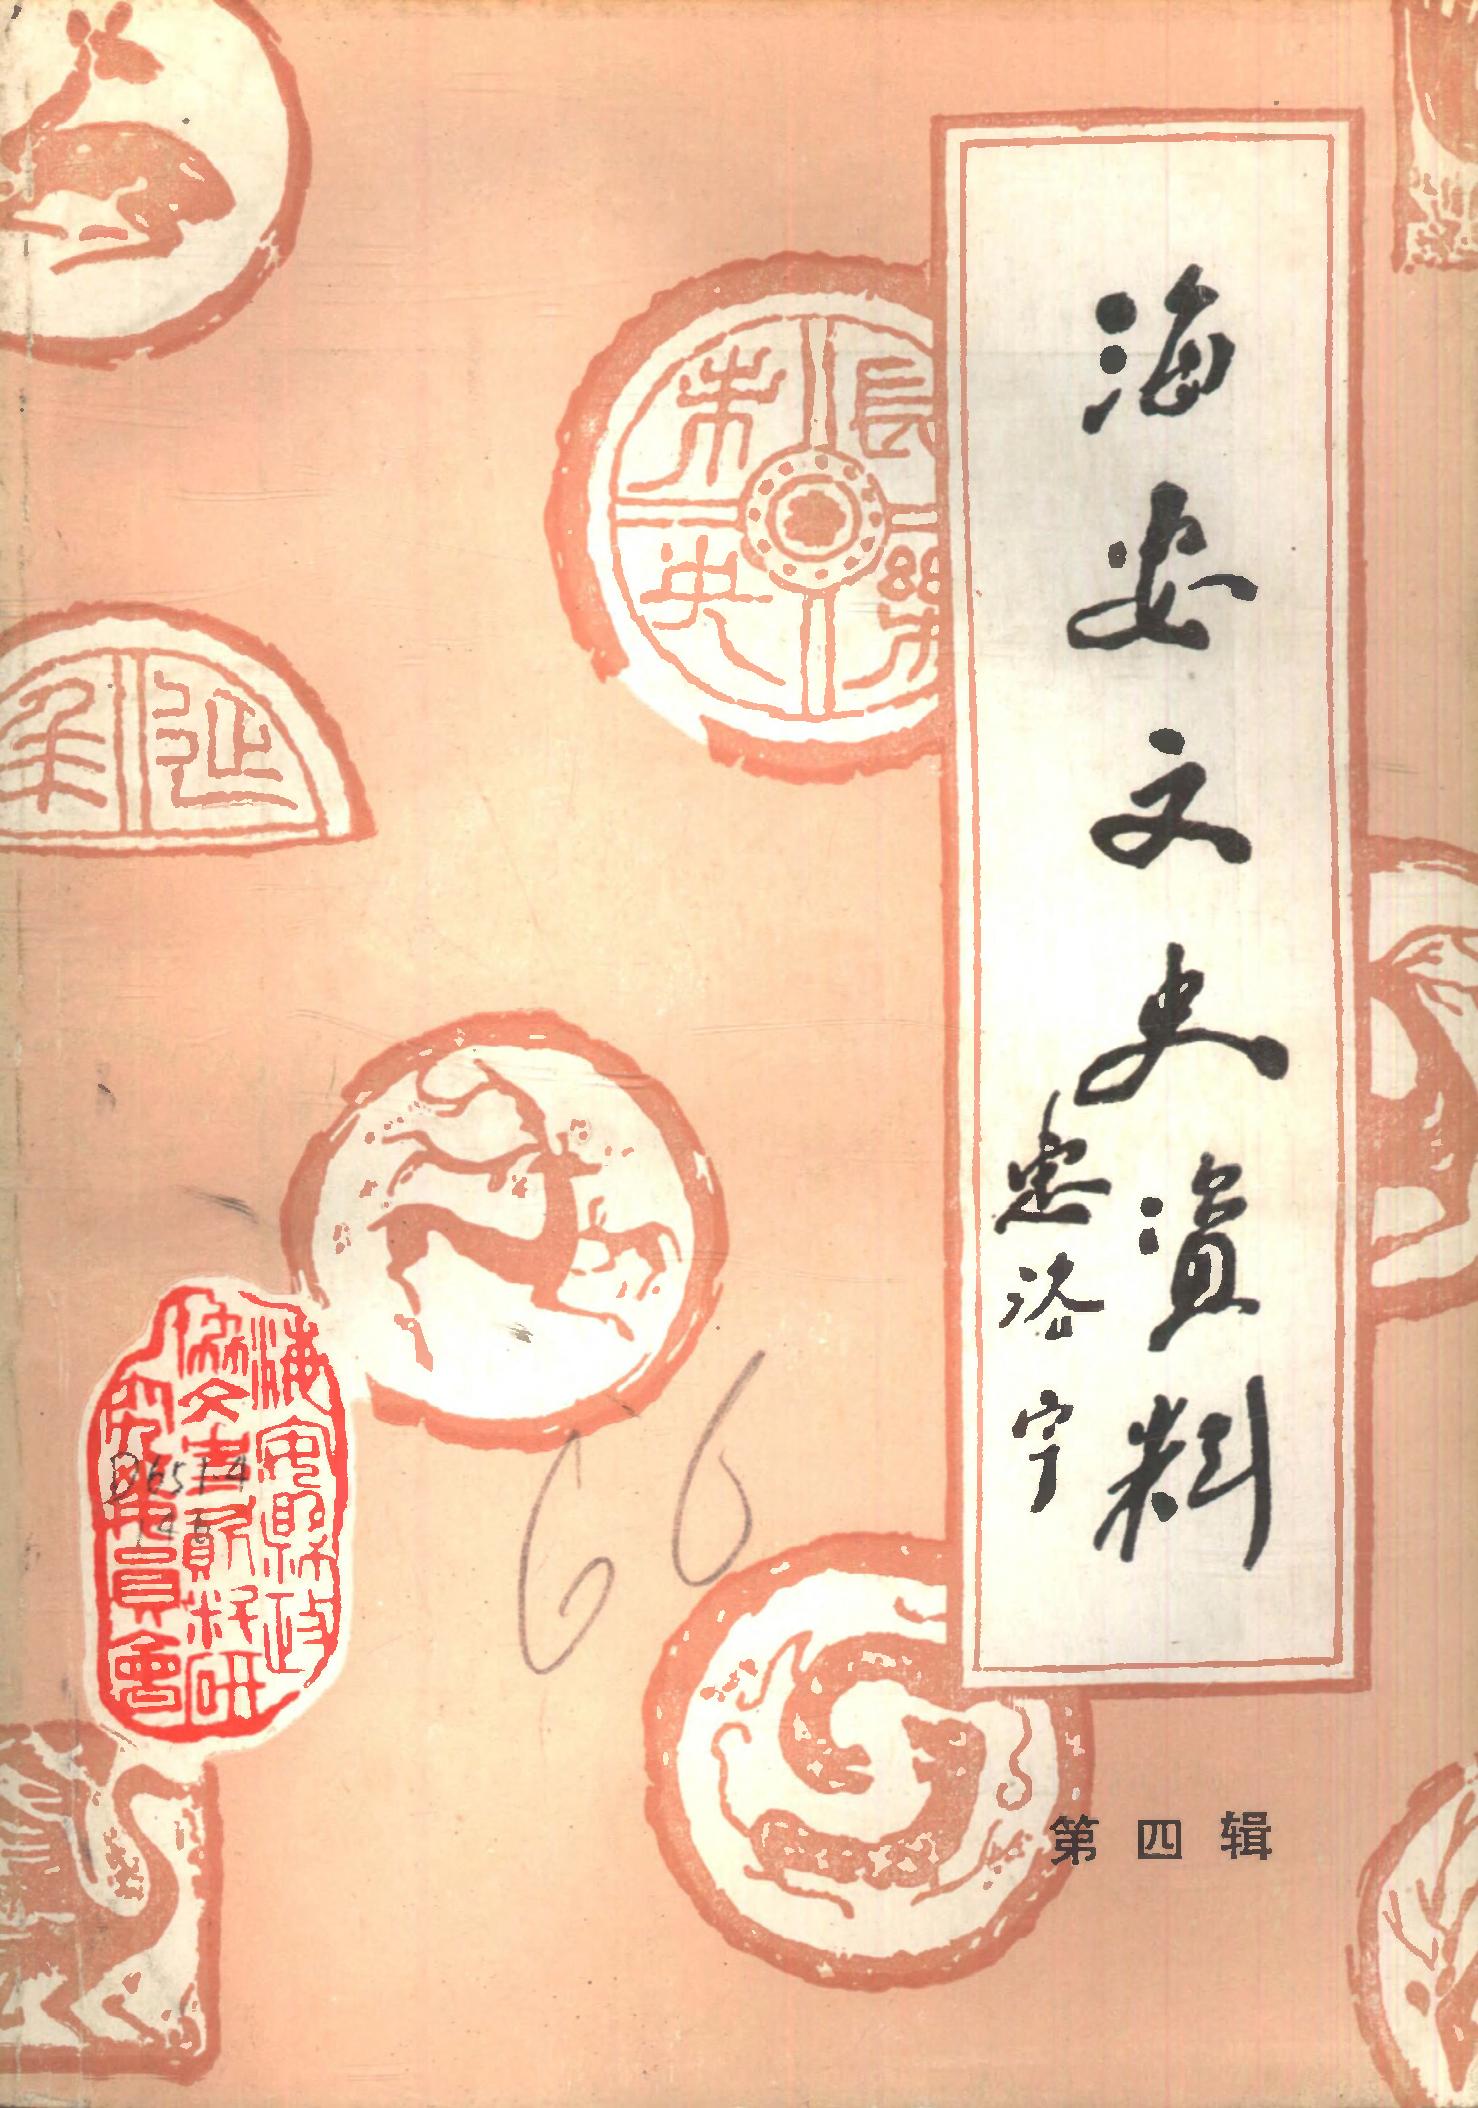 海安文史资料
惠浴宇
第四辑
长乐
未央
延年
海安县政
协文史资料研
究委员会
66
D651.4